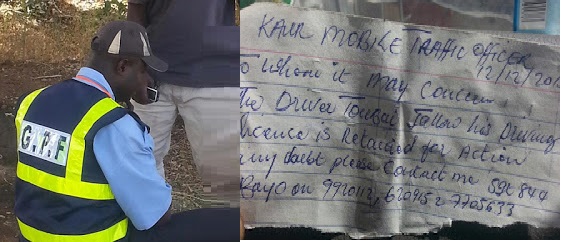 G.P.F
KAUR MOBILE TRAFFIC OFFICER
12/12/20
To whom it may Concern
The Driver Toubab Jallow his Driving
licence is Retained for Action
any doubt please Contact me
Bayo on